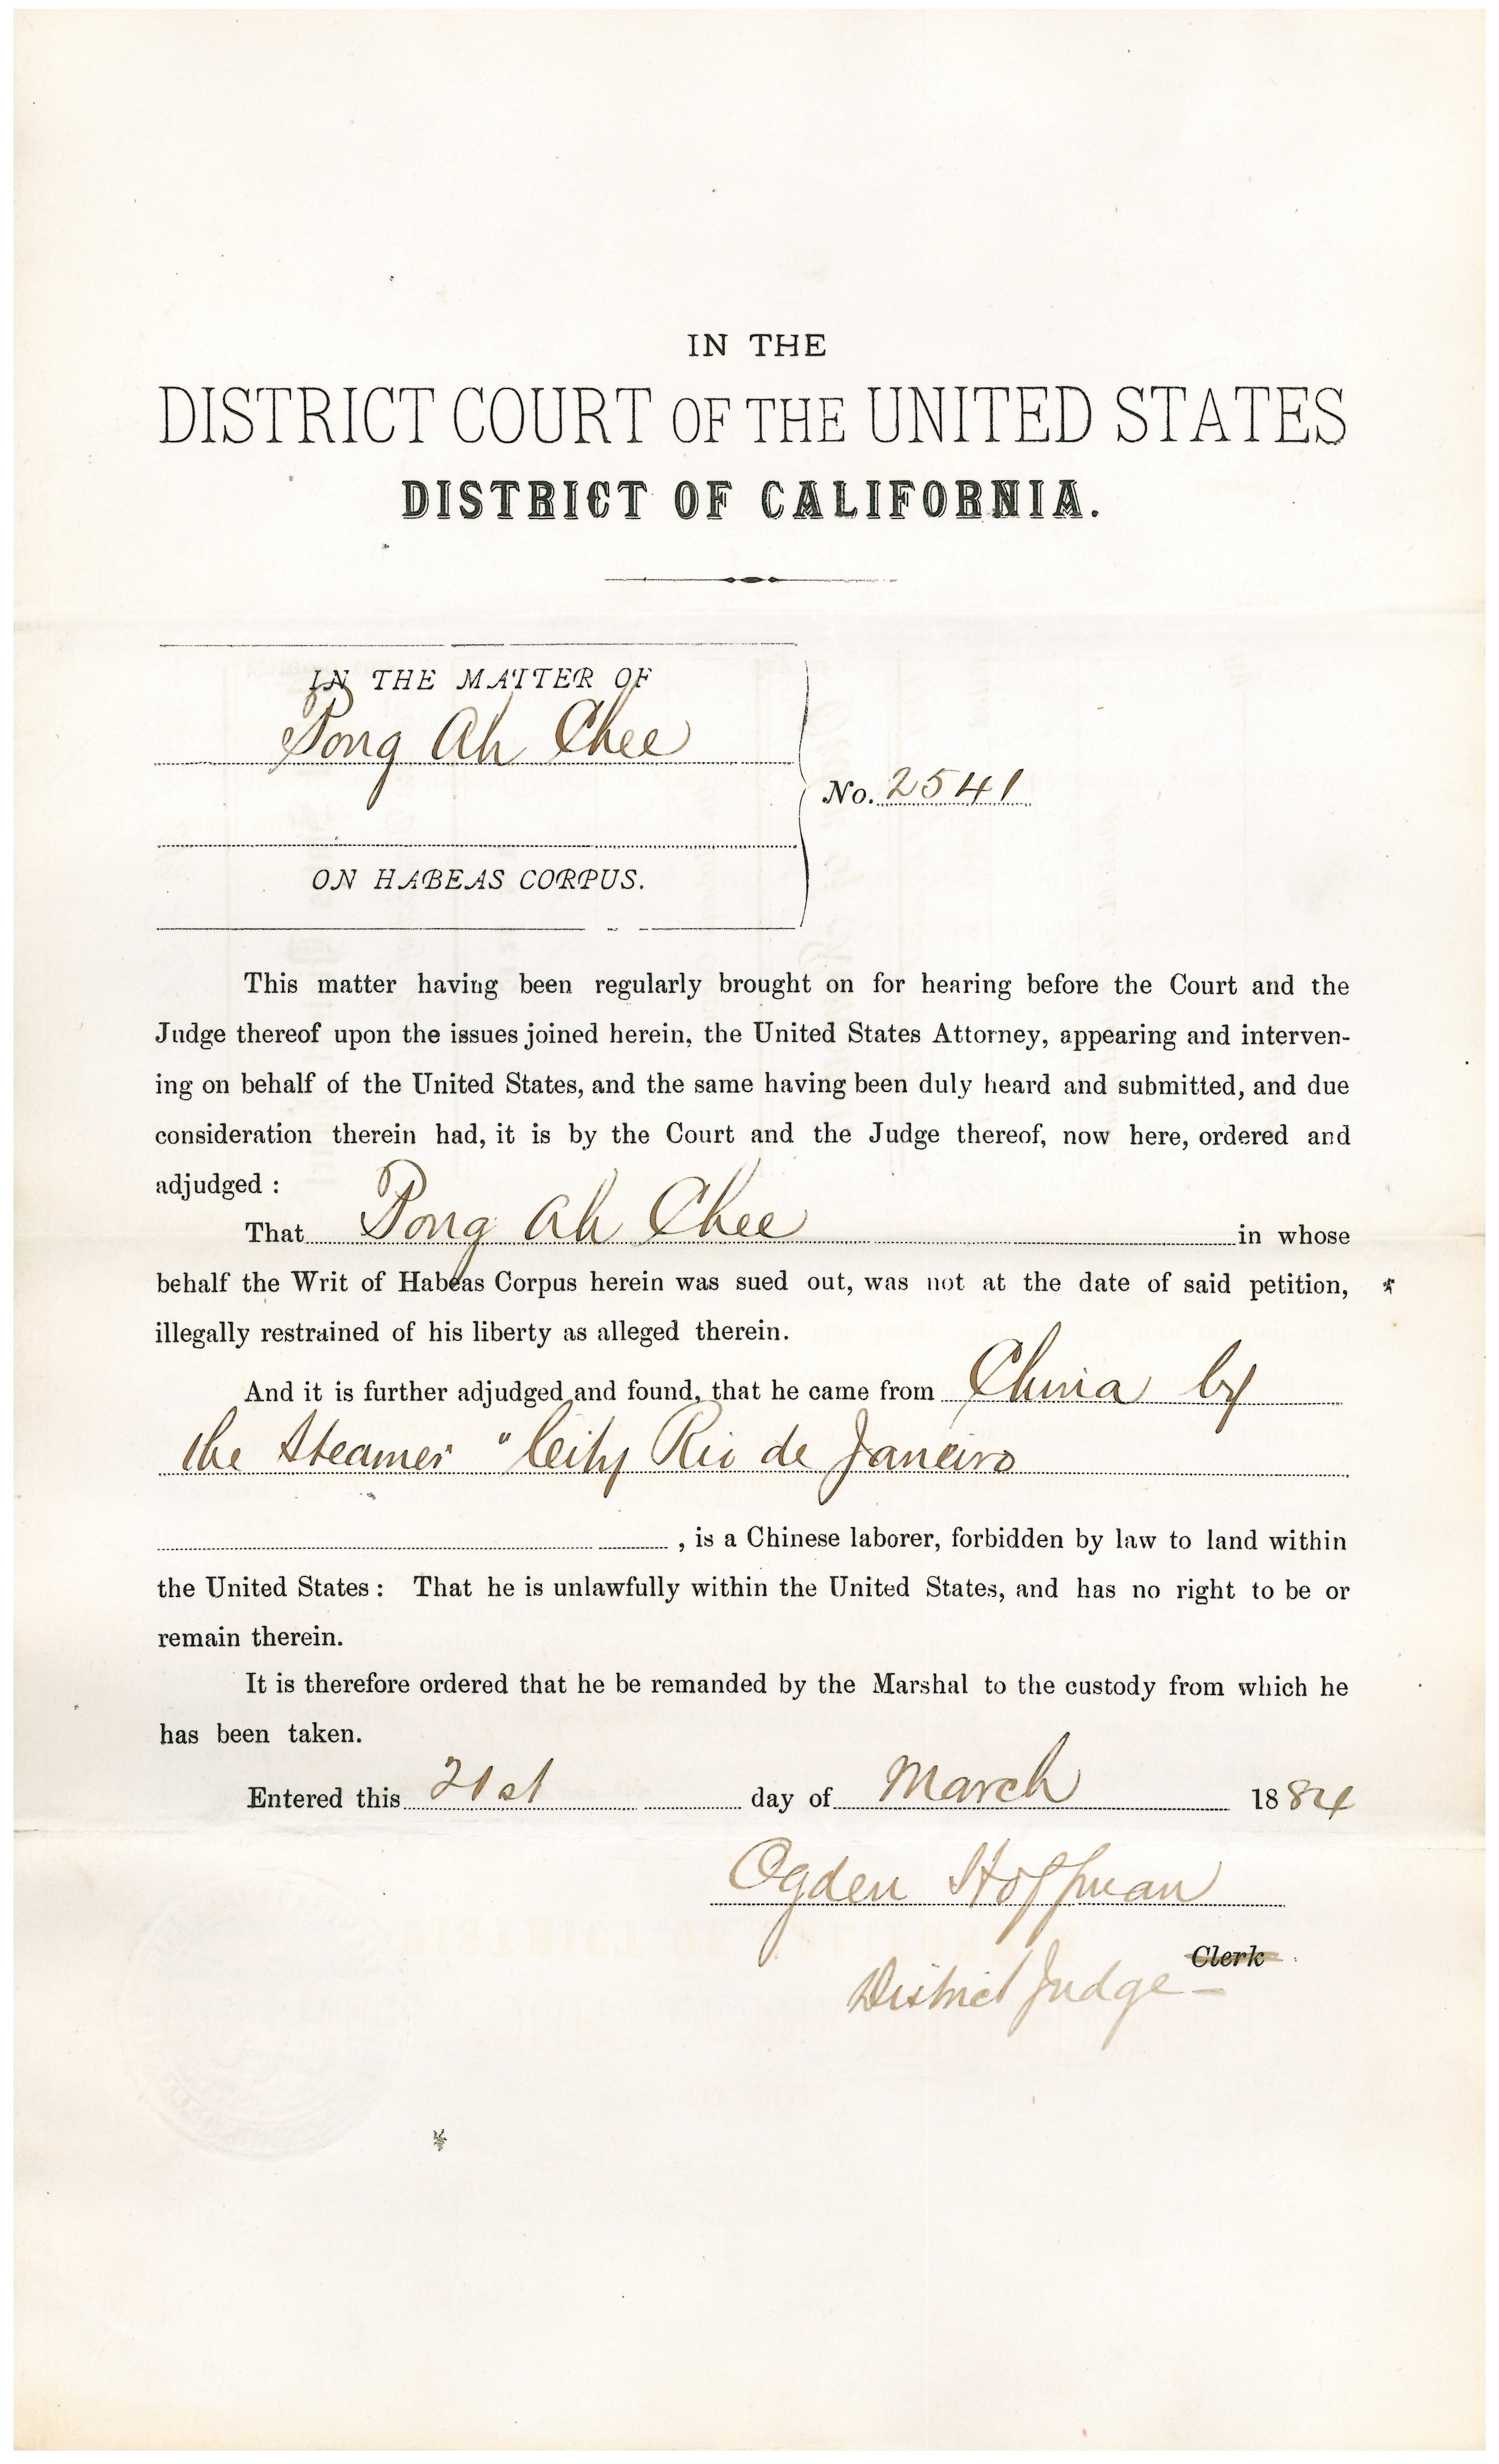 IN THE
DISTRICT COURT OF THE UNITED STATES
DISTRICT OF CALIFORNIA.
IN THE MATTER OF
Pong Ah Chee
No. 2541
ON HABEAS CORPUS.
This matter having been regularly brought on for hearing before the Court and the
Judge thereof upon the issues joined herein, the United States Attorney, appearing and interven-
ing on behalf of the United States, and the same having been duly heard and submitted, and due
consideration therein had, it is by the Court and the Judge thereof, now here, ordered and
adjudged :
That Pong Ah Chee in whose
behalf the Writ of Habeas Corpus herein was sued out, was not at the date of said petition,
illegally restrained of his liberty as alleged therein.
And it is further adjudged and found, that he came from China by
the Steamer "City Rio de Janeiro
, is a Chinese laborer, forbidden by law to land within
the United States : That he is unlawfully within the United States, and has no right to be or
remain therein.
It is therefore ordered that he be remanded by the Marshal to the custody from which he
has been taken.
Entered this 21st day of March 1884
Ogden Hoffman
Clerk
District Judge -